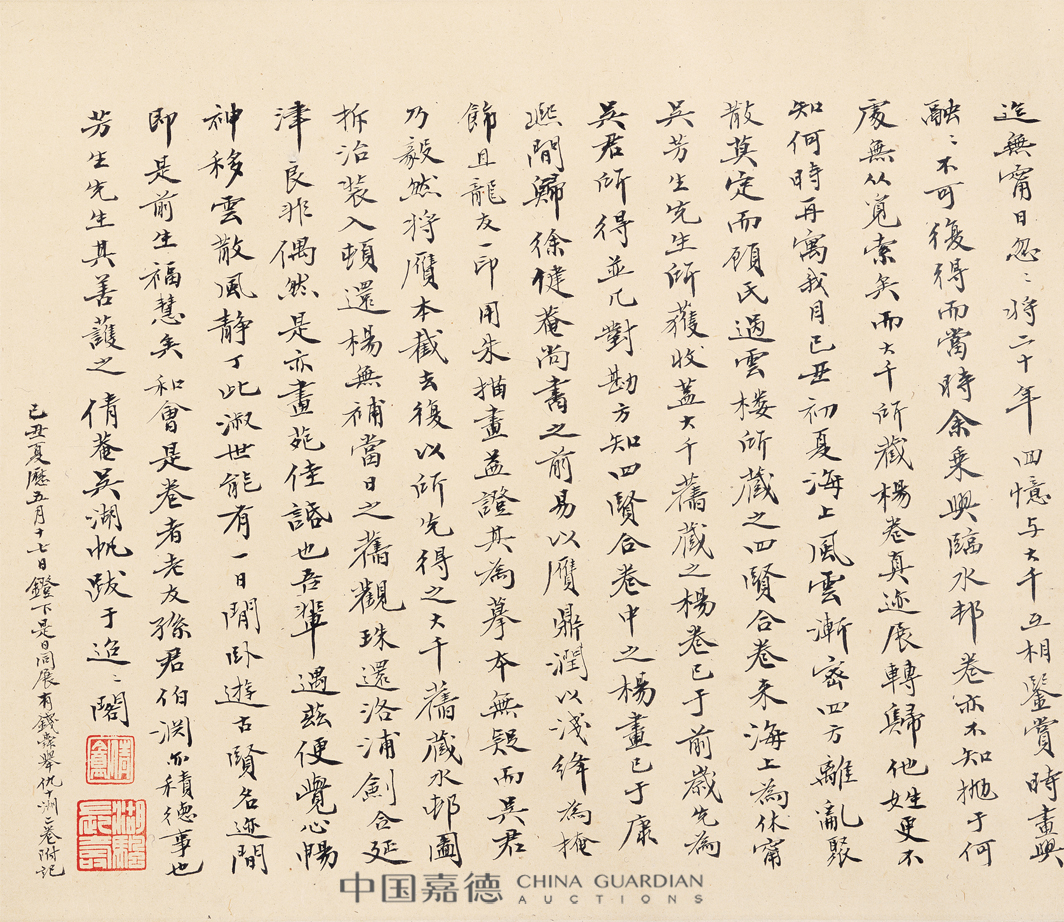 迄無甯日忽〻將二十年回憶与大千互相鑒賞時畫興
融〻不可復得而當時余乘興臨水邨卷亦不知拋于何
處無从覓索矣而大千所藏楊卷真迹展轉歸他姓更不
知何時再寓我目己丑初夏海上風雲漸密四方離亂聚
散莫定而顧氏過雲樓所藏之四賢合卷來海上為休甯
吳芳生先生所獲收蓋大千舊藏之楊卷已于前歲先為
吳君所得並几對勘方知四賢合卷中之楊畫已于康
熙間歸徐健菴尚書之前易以贋鼎潤以淺絳為掩
飾且龍友一印用朱描畫益證其為摹本無疑而吳君
乃毅然將贋本截去復以所先得之大千舊藏水邨圖
拆治裝入頓還楊無補當日之舊觀珠還洛浦劍合延
津良非偶然是亦畫苑佳話也吾輩遇茲便覺心暢
神移雲散風靜丁此濁世能有一日閒臥遊古賢名迹間
即是前生福慧矣和會是卷者老友孫君伯淵亦積德事也
芳生先生其善護之 倩菴吳湖帆跋于迢〻閣
己丑夏曆五月十七日鐙下是日同展有錢叔舉仇十洲二卷附記
倩盦
湖颿長壽
中国嘉德 CHINA GUARDIAN
AUCTIONS